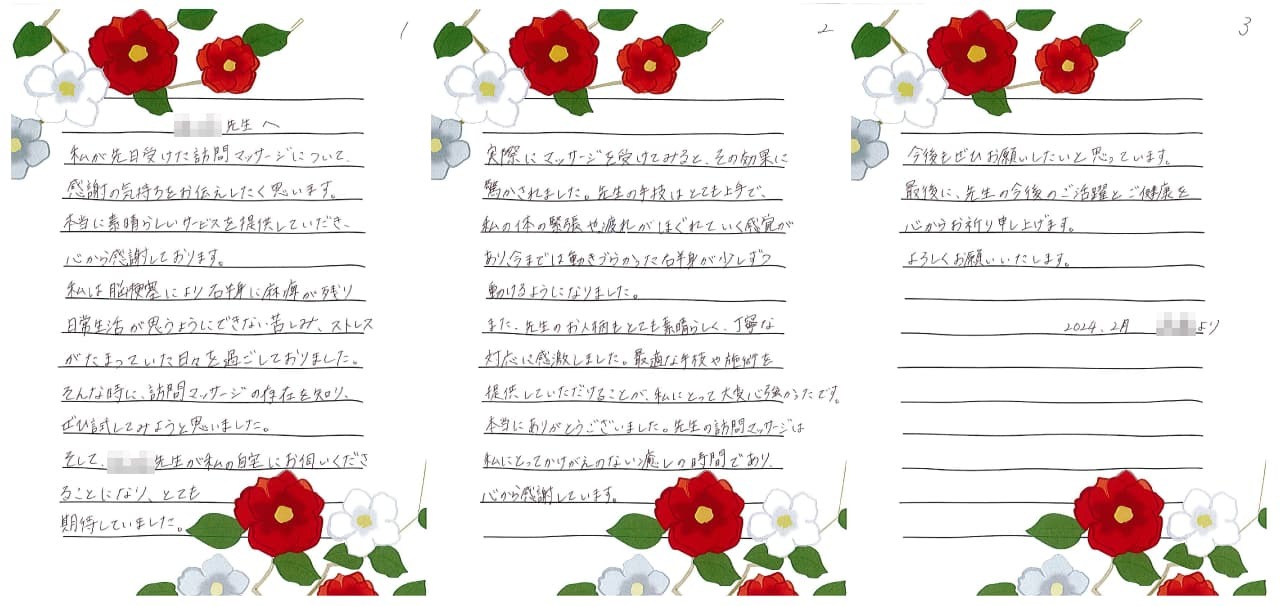 1
先生へ
私が先日受けた訪問マッサージについて、
感謝の気持ちをお伝えしたく思います。
本当に素晴らしいサービスを提供していだき、
心から感謝しております。
私は脳梗塞により右半身に麻痺が残り
日常生活が思うようにできない苦しみ、ストレス
がたまっていた日々を過ごしておりました。
そんな時に、訪問マッサージの存在を知り、
ぜひ試してみようと思いました。
そして、先生が私の自宅にお伺いくださ
ることになり、とても
期待していました。
2
実際にマッサージを受けてみると、その効果に
驚かされました。先生の手技はとても上手で、
私の体の緊張や疲れがほぐれていく感覚が
あり、今までは動きづらかった右半身が少しずつ
動けるようになりました。
また、先生のお人柄もとても素晴らしく、丁寧な
対応に感激しました。最適な手技や施術を
提供していただけることが、私にとって大変心強かったです。
本当にありがとうございました。先生の訪問マッサージは
私にとってかけがえのない癒しの時間であり、
心から感謝しています。
3
今後もぜひお願いしたいと思っています。
最後に、先生の今後のご活躍とご健康を
心からお祈り申し上げます。
よろしくお願いいたします。
2024、2月 より